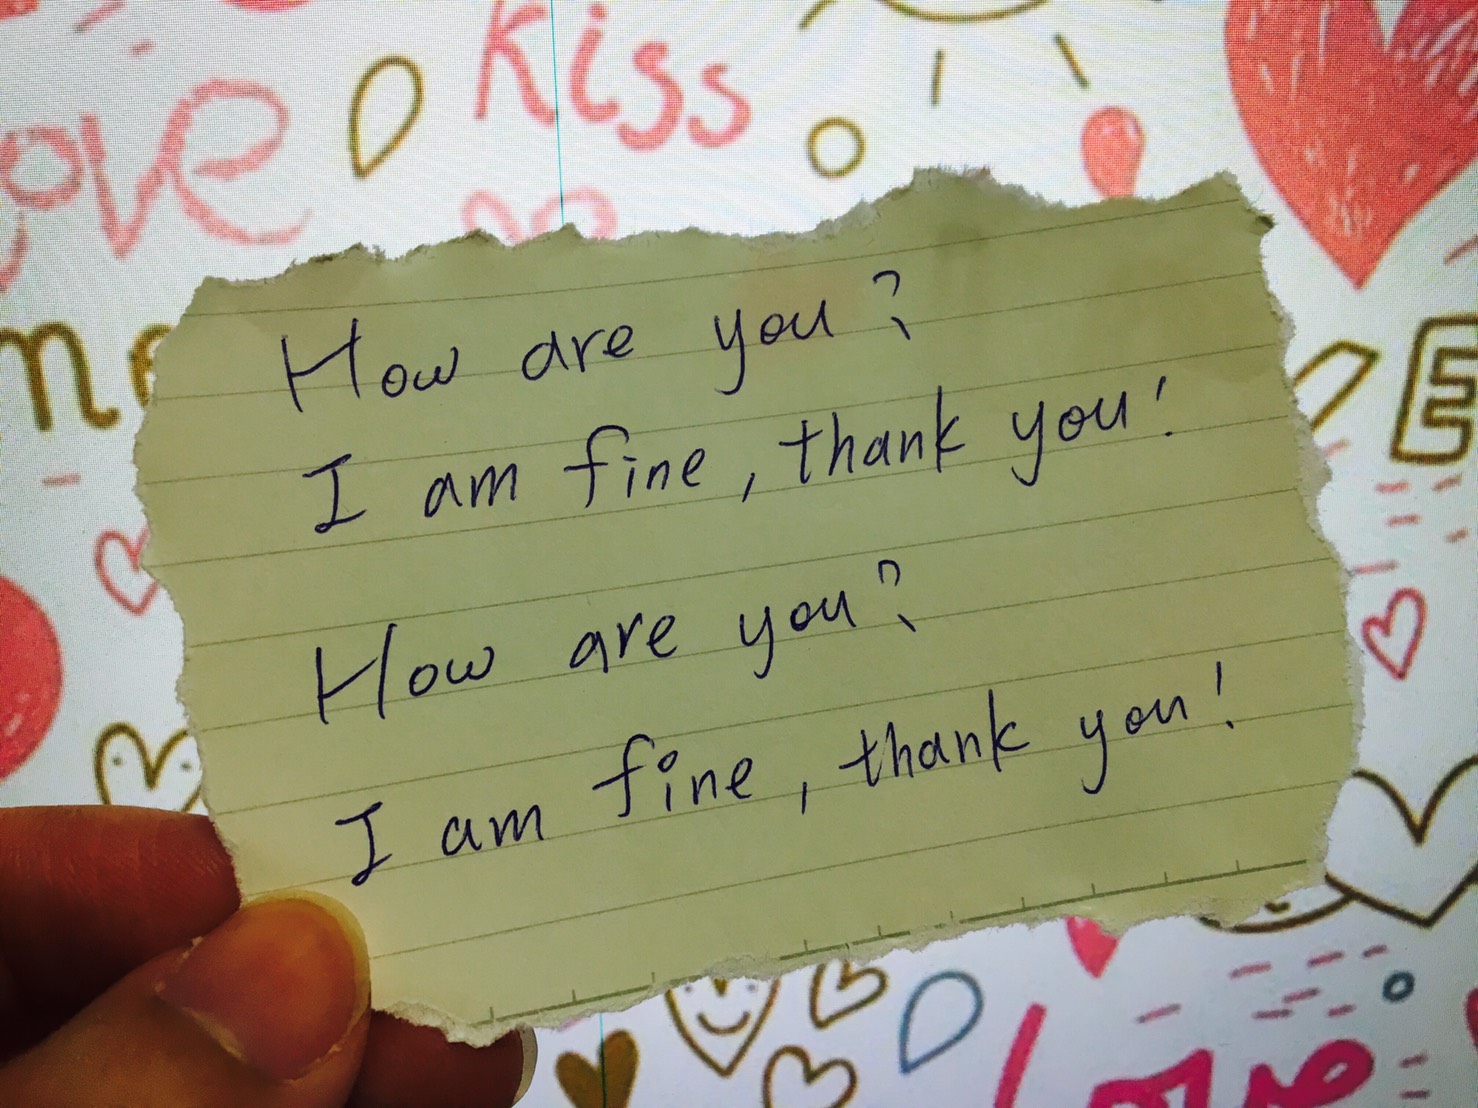 Kiss
ove
me
E
How are you?
I am fine, thank you!
How are you?
I am fine, thank you!
Love